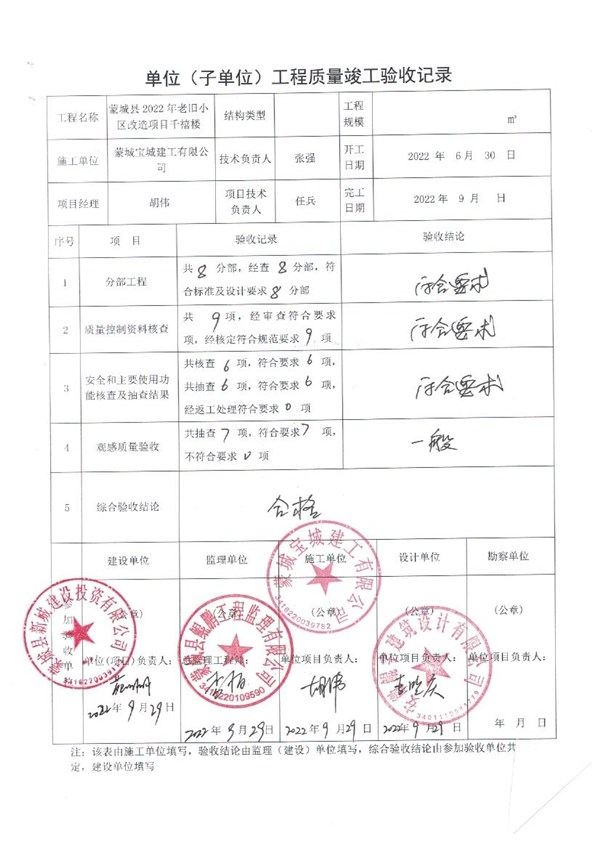 单位（子单位）工程质量竣工验收记录
工程名称 蒙城县 2022 年老旧小区改造项目千禧楼 结构类型 工程规模 ㎡
施工单位 蒙城宝城建工有限公司 技术负责人 张强 开工日期 2022 年 6 月 30 日
项目经理 胡伟 项目技术负责人 任兵 完工日期 2022 年 9 月 日
序号 项 目 验收记录 验收结论
1 分部工程 共 8 分部，经查 8 分部，符合标准及设计要求 8 分部 符合要求
2 质量控制资料核查 共 9 项，经审查符合要求 项，经核定符合规范要求 9 项 符合要求
3 安全和主要使用功能核查及抽查结果 共核查 6 项，符合要求 6 项，共抽查 6 项，符合要求 6 项，经返工处理符合要求 0 项 符合要求
4 观感质量验收 共抽查 7 项，符合要求 7 项，不符合要求 0 项 一般
5 综合验收结论 合格
参加验收单位
建设单位 监理单位 施工单位 设计单位 勘察单位
（公章） （公章） （公章） （公章）
单位(项目)负责人： 总监理工程师： 单位项目负责人： 单位项目负责人： 单位项目负责人：
胡伟
2022年 9 月 29 日 2022 年 9 月 29 日 2022 年 9 月 29 日 2022年 9 月 29 日 年 月 日
蒙城县新城建设投资有限公司
蒙城县鲲鹏工程监理有限公司
3416220109590
蒙城宝城建工有限公司
3416220039782
建筑设计有限公司
注：该表由施工单位填写，验收结论由监理（建设）单位填写，综合验收结论由参加验收单位共
定，建设单位填写